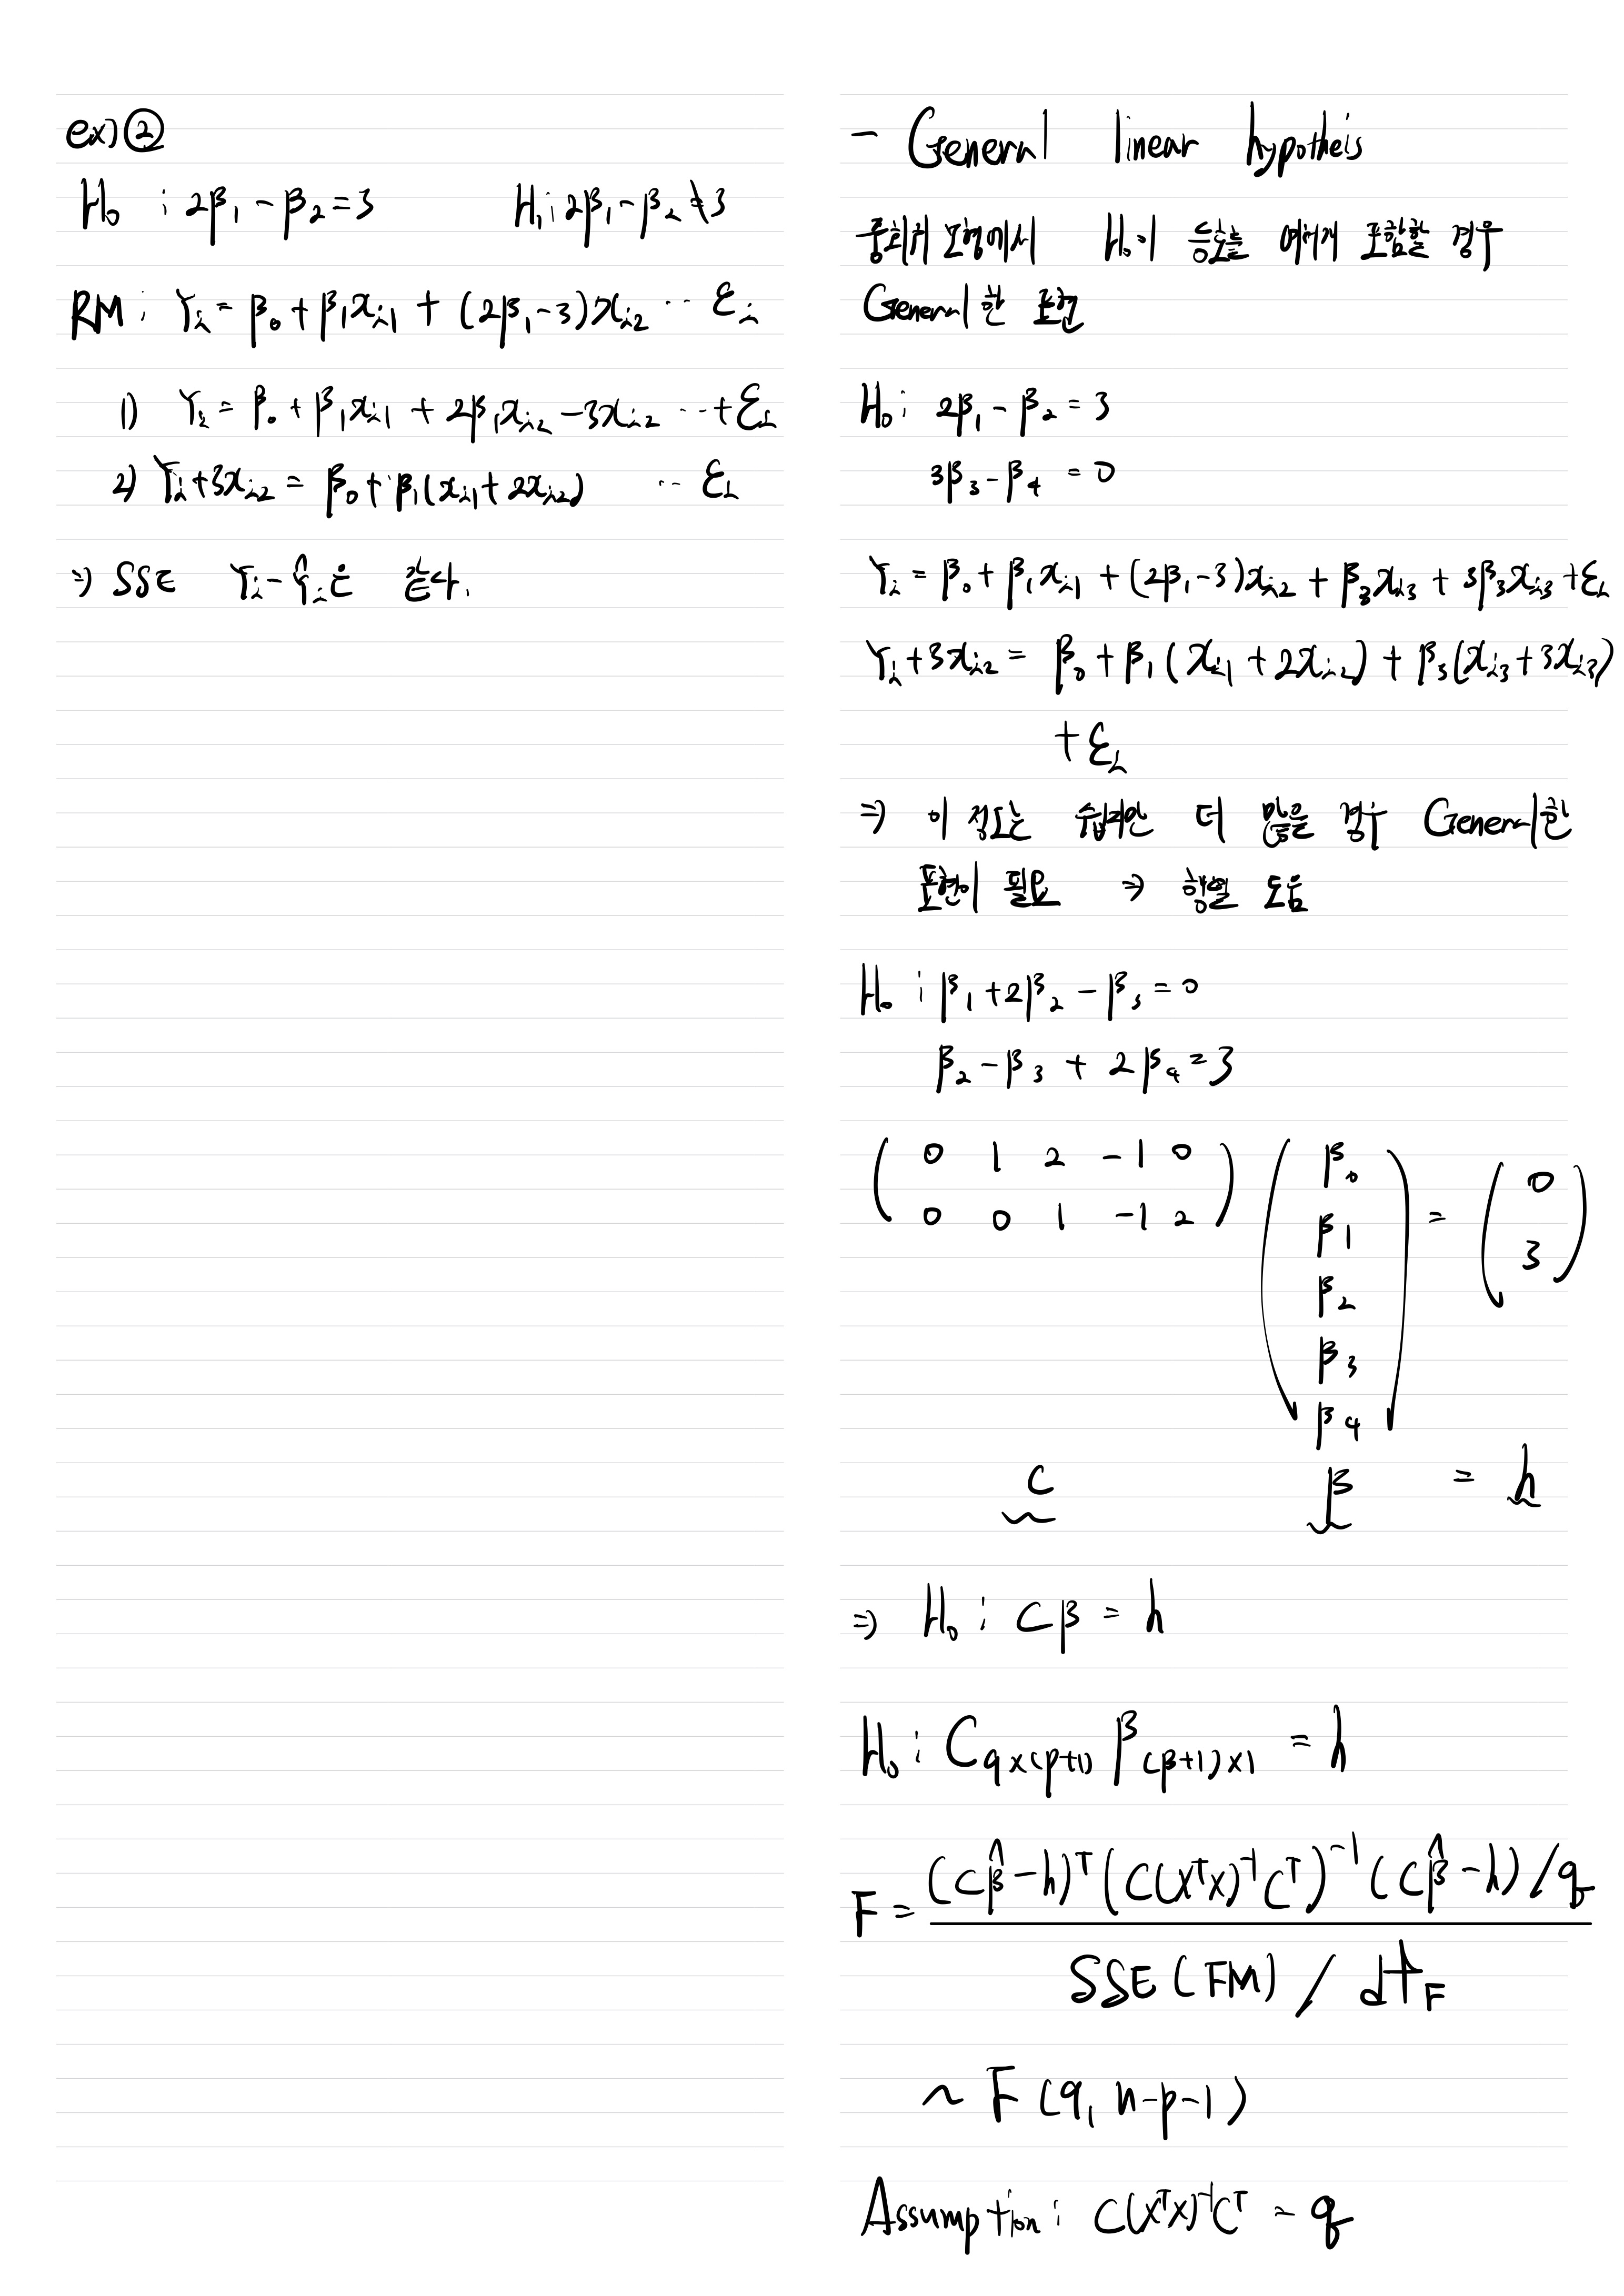 ex) ②
H₀ : 2β₁ - β₂ = 3 H₁ : 2β₁ - β₂ ≠ 3
RM : Yᵢ = β₀ + β₁xᵢ₁ + (2β₁-3)xᵢ₂ ... εᵢ
1) Yᵢ = β₀ + β₁xᵢ₁ + 2β₁xᵢ₂ - 3xᵢ₂ ... + εᵢ
2) Yᵢ+3xᵢ₂ = β₀ + β₁(xᵢ₁ + 2xᵢ₂) ... εᵢ
⇒ SSE Yᵢ-Ŷᵢ는 같다.
- General linear hypotheis
중회귀 모형에서 H₀이 등호를 여러개 포함할 경우
General한 표현
H₀ : 2β₁ - β₂ = 3
3β₃ - β₄ = 0
Yᵢ = β₀ + β₁xᵢ₁ + (2β₁-3)xᵢ₂ + β₃xᵢ₃ + 3β₃xᵢ₃ + εᵢ
Yᵢ+3xᵢ₂ = β₀ + β₁(xᵢ₁ + 2xᵢ₂) + β₃(xᵢ₃ + 3xᵢ₃)
+ εᵢ
⇒ 이 정도는 쉽지만 더 많을 경우 General한
표현이 필요 ⇒ 행렬 도움
H₀ : β₁ + 2β₂ - β₃ = 0
β₂ - β₃ + 2β₄ = 3
( 0 1 2 -1 0 ) ( β₀ ) = ( 0 )
( 0 0 1 -1 2 ) ( β₁ ) ( 3 )
β₂
β₃
β₄
C β = h
⇒ H₀ : Cβ = h
H₀ : C q×(p+1) β (p+1)×1 = h
F = (Cβ̂-h)ᵀ(C(XᵀX)⁻¹Cᵀ)⁻¹(Cβ̂-h)/q
SSE(FM) / df_F
~ F(q, n-p-1)
Assumption : C(XᵀX)⁻¹Cᵀ = q